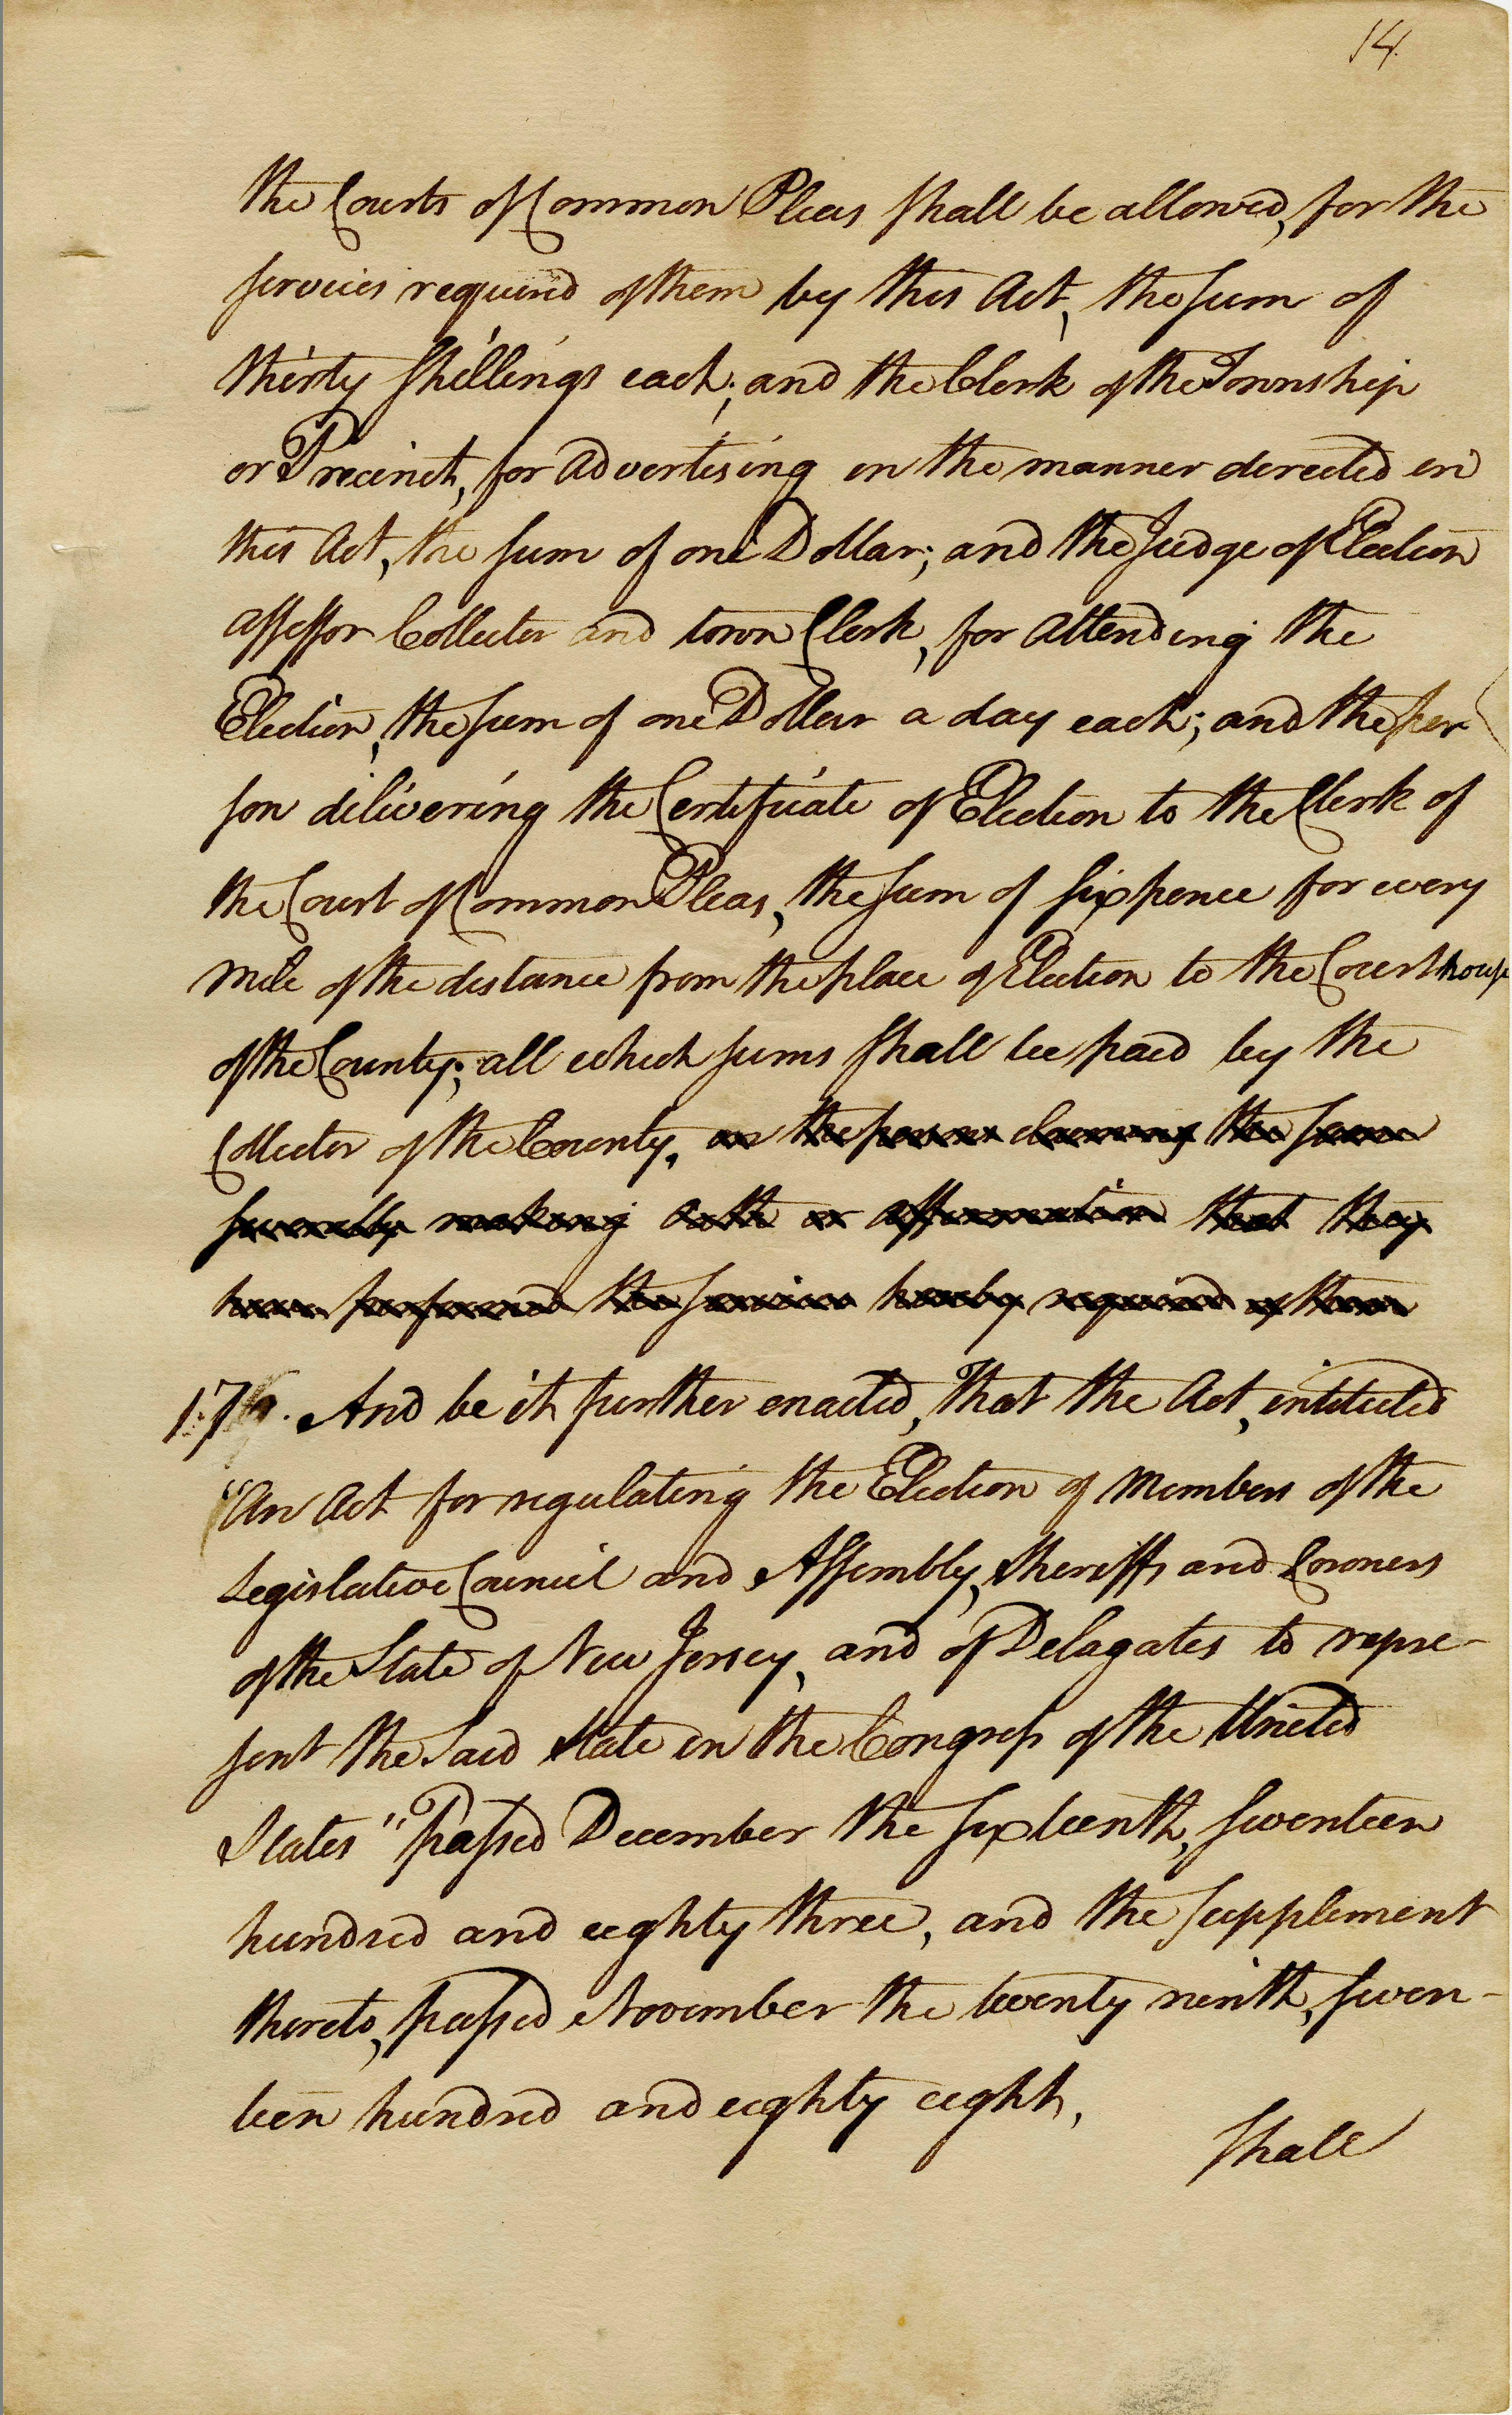 14.
the Courts of Common Pleas shall be allowed, for the
services required of them by this Act, the sum of
thirty Shillings each; and the Clerk of the Township
or Precinct, for advertising in the manner directed in
this Act, the sum of one Dollar; and the Judge of Election
assessor Collector and town Clerk, for attending the
Election, the sum of one Dollar a day each; and the per
son delivering the Certificate of Election to the Clerk of
the Court of Common Pleas, the sum of sixpence for every
mile of the distance from the place of Election to the Court house
of the County; all which sums shall be paid by the
Collector of the County. on the person claiming the same
severally making oath or affirmation that they
have performed the services hereby required of them
17. And be it further enacted, That the Act, intituled
"An Act for regulating the Election of Members of the
Legislative Council and Assembly, Sheriffs and Coroners
of the State of New Jersey, and of Delagates to repre-
sent the said State in the Congress of the United
States" Passed December the sixteenth, seventeen
hundred and eighty three, and the supplement
thereto, passed November the twenty ninth, seven-
teen hundred and eighty eight,
shall